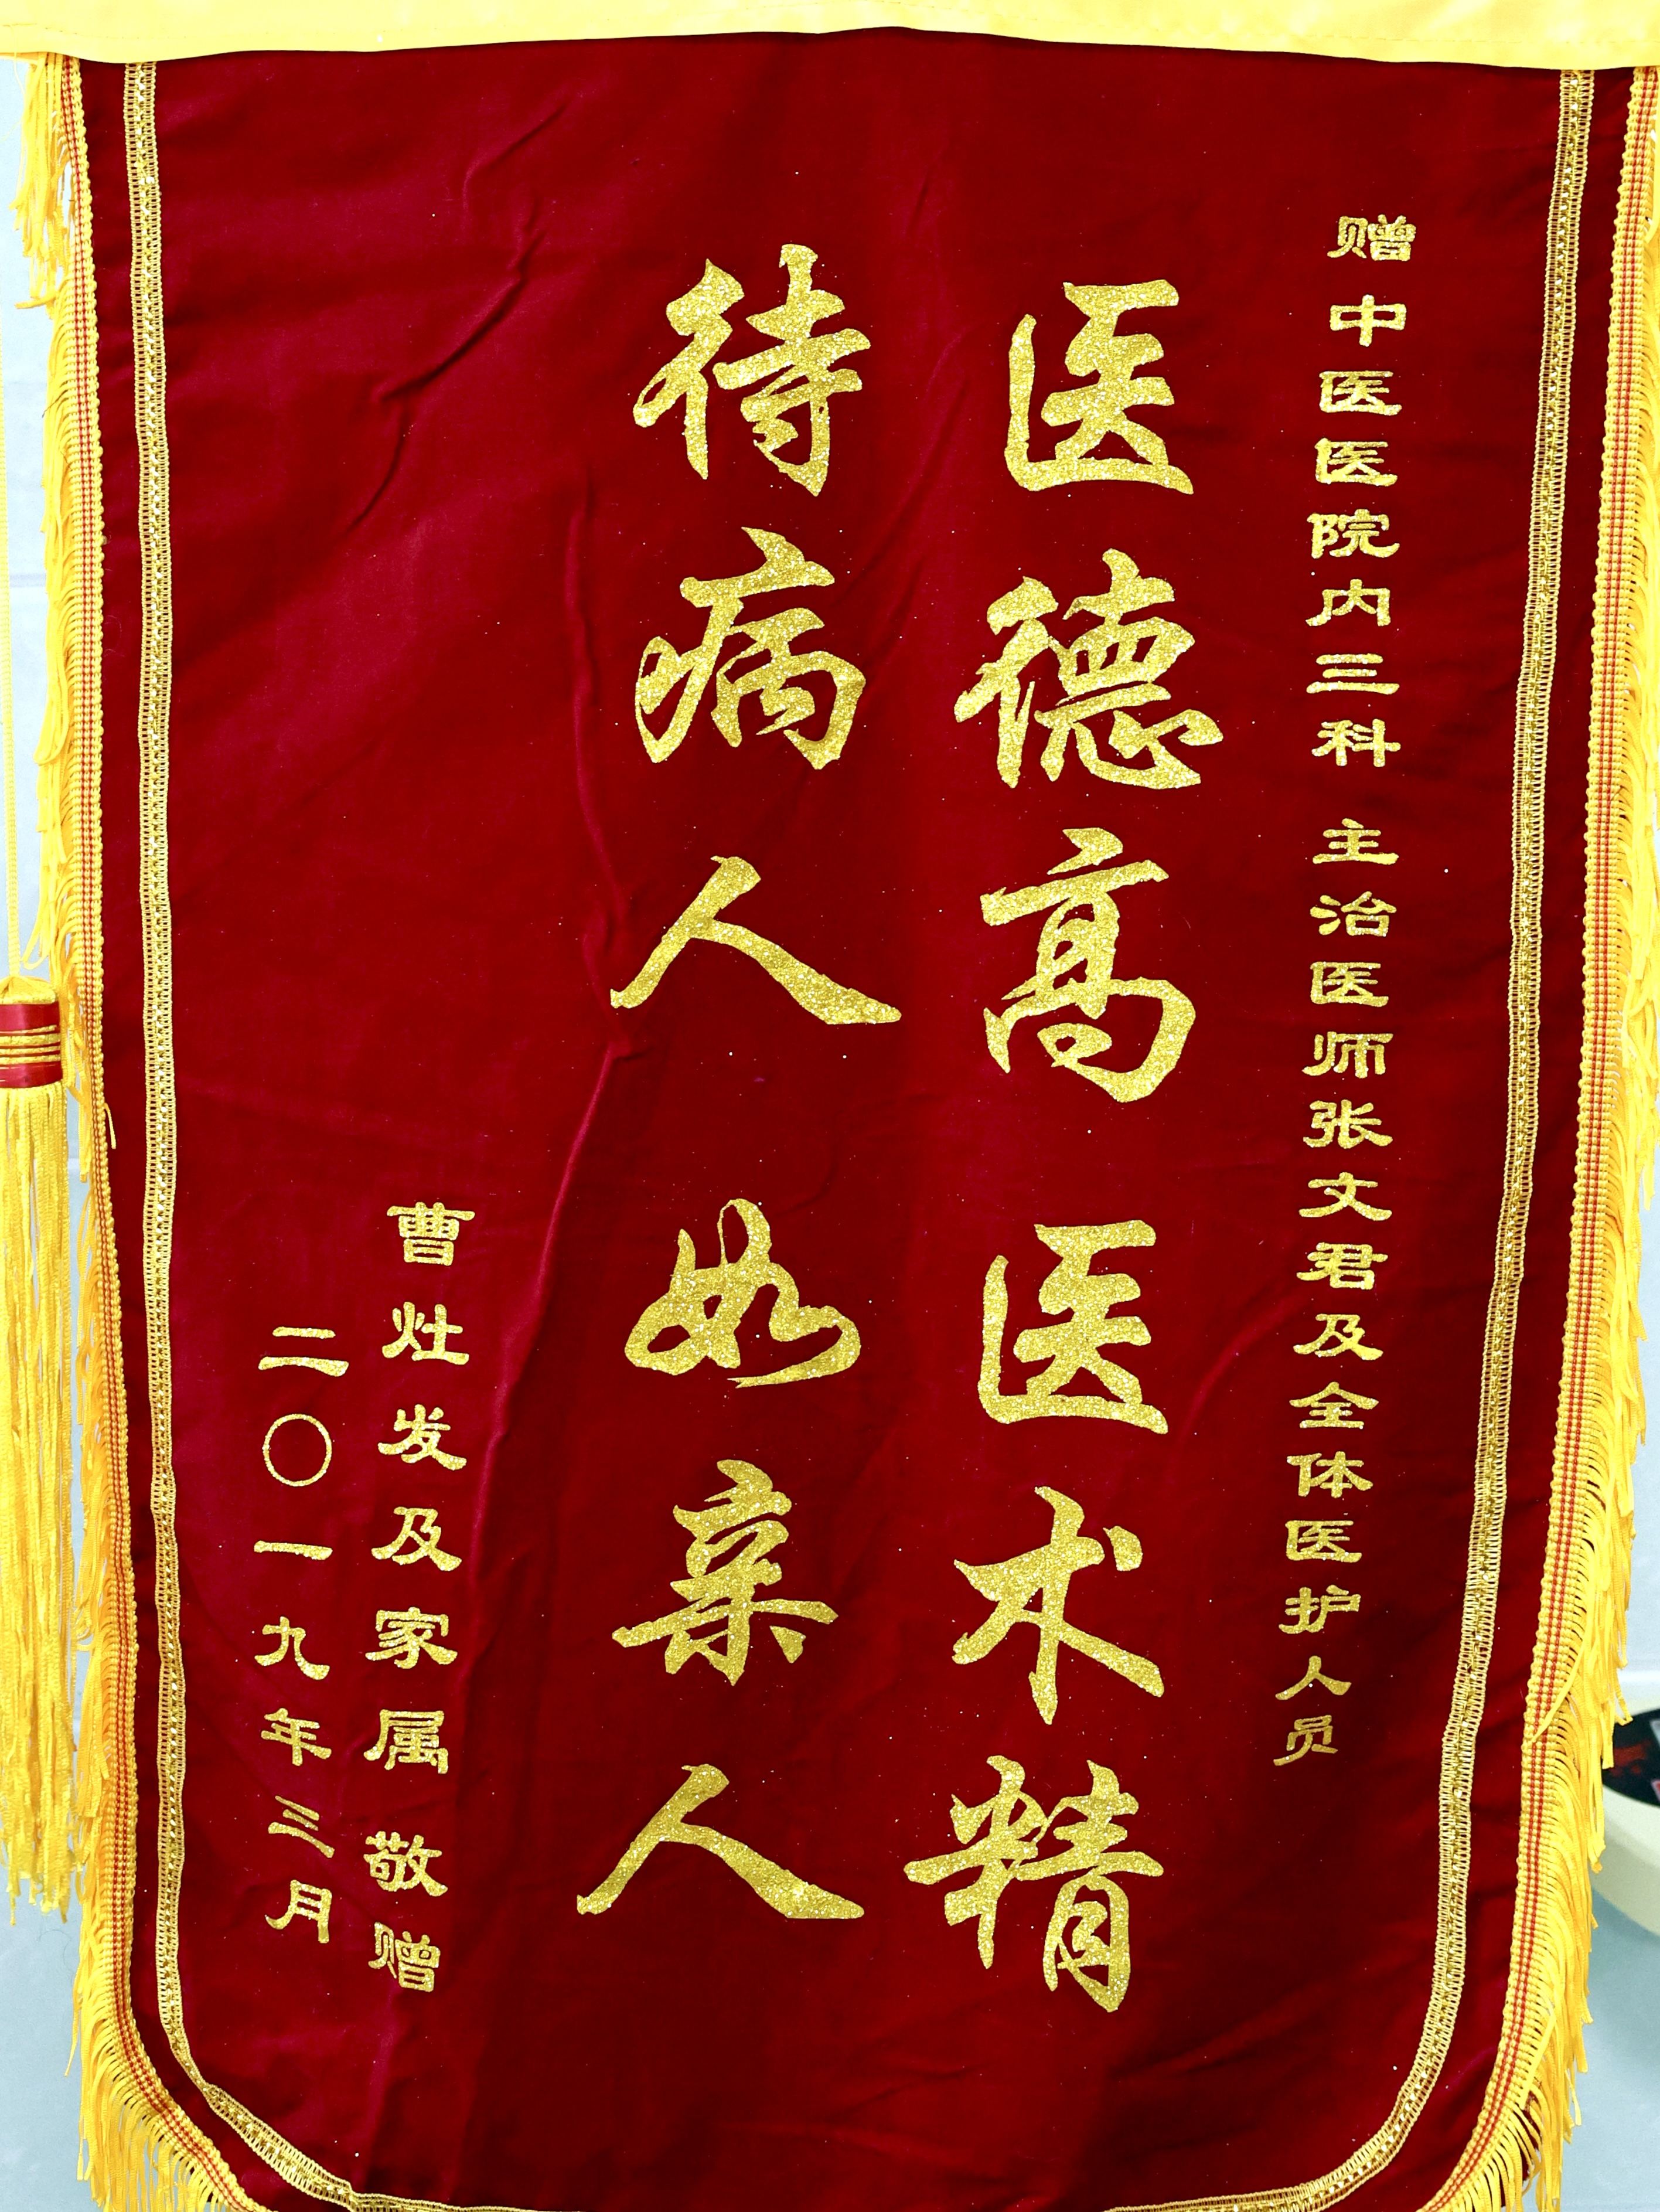 赠中医医院内三科 主治医师张文君及全体医护人员
医德高医术精
待病人如亲人
曹灶发及家属敬赠
二〇一九年三月